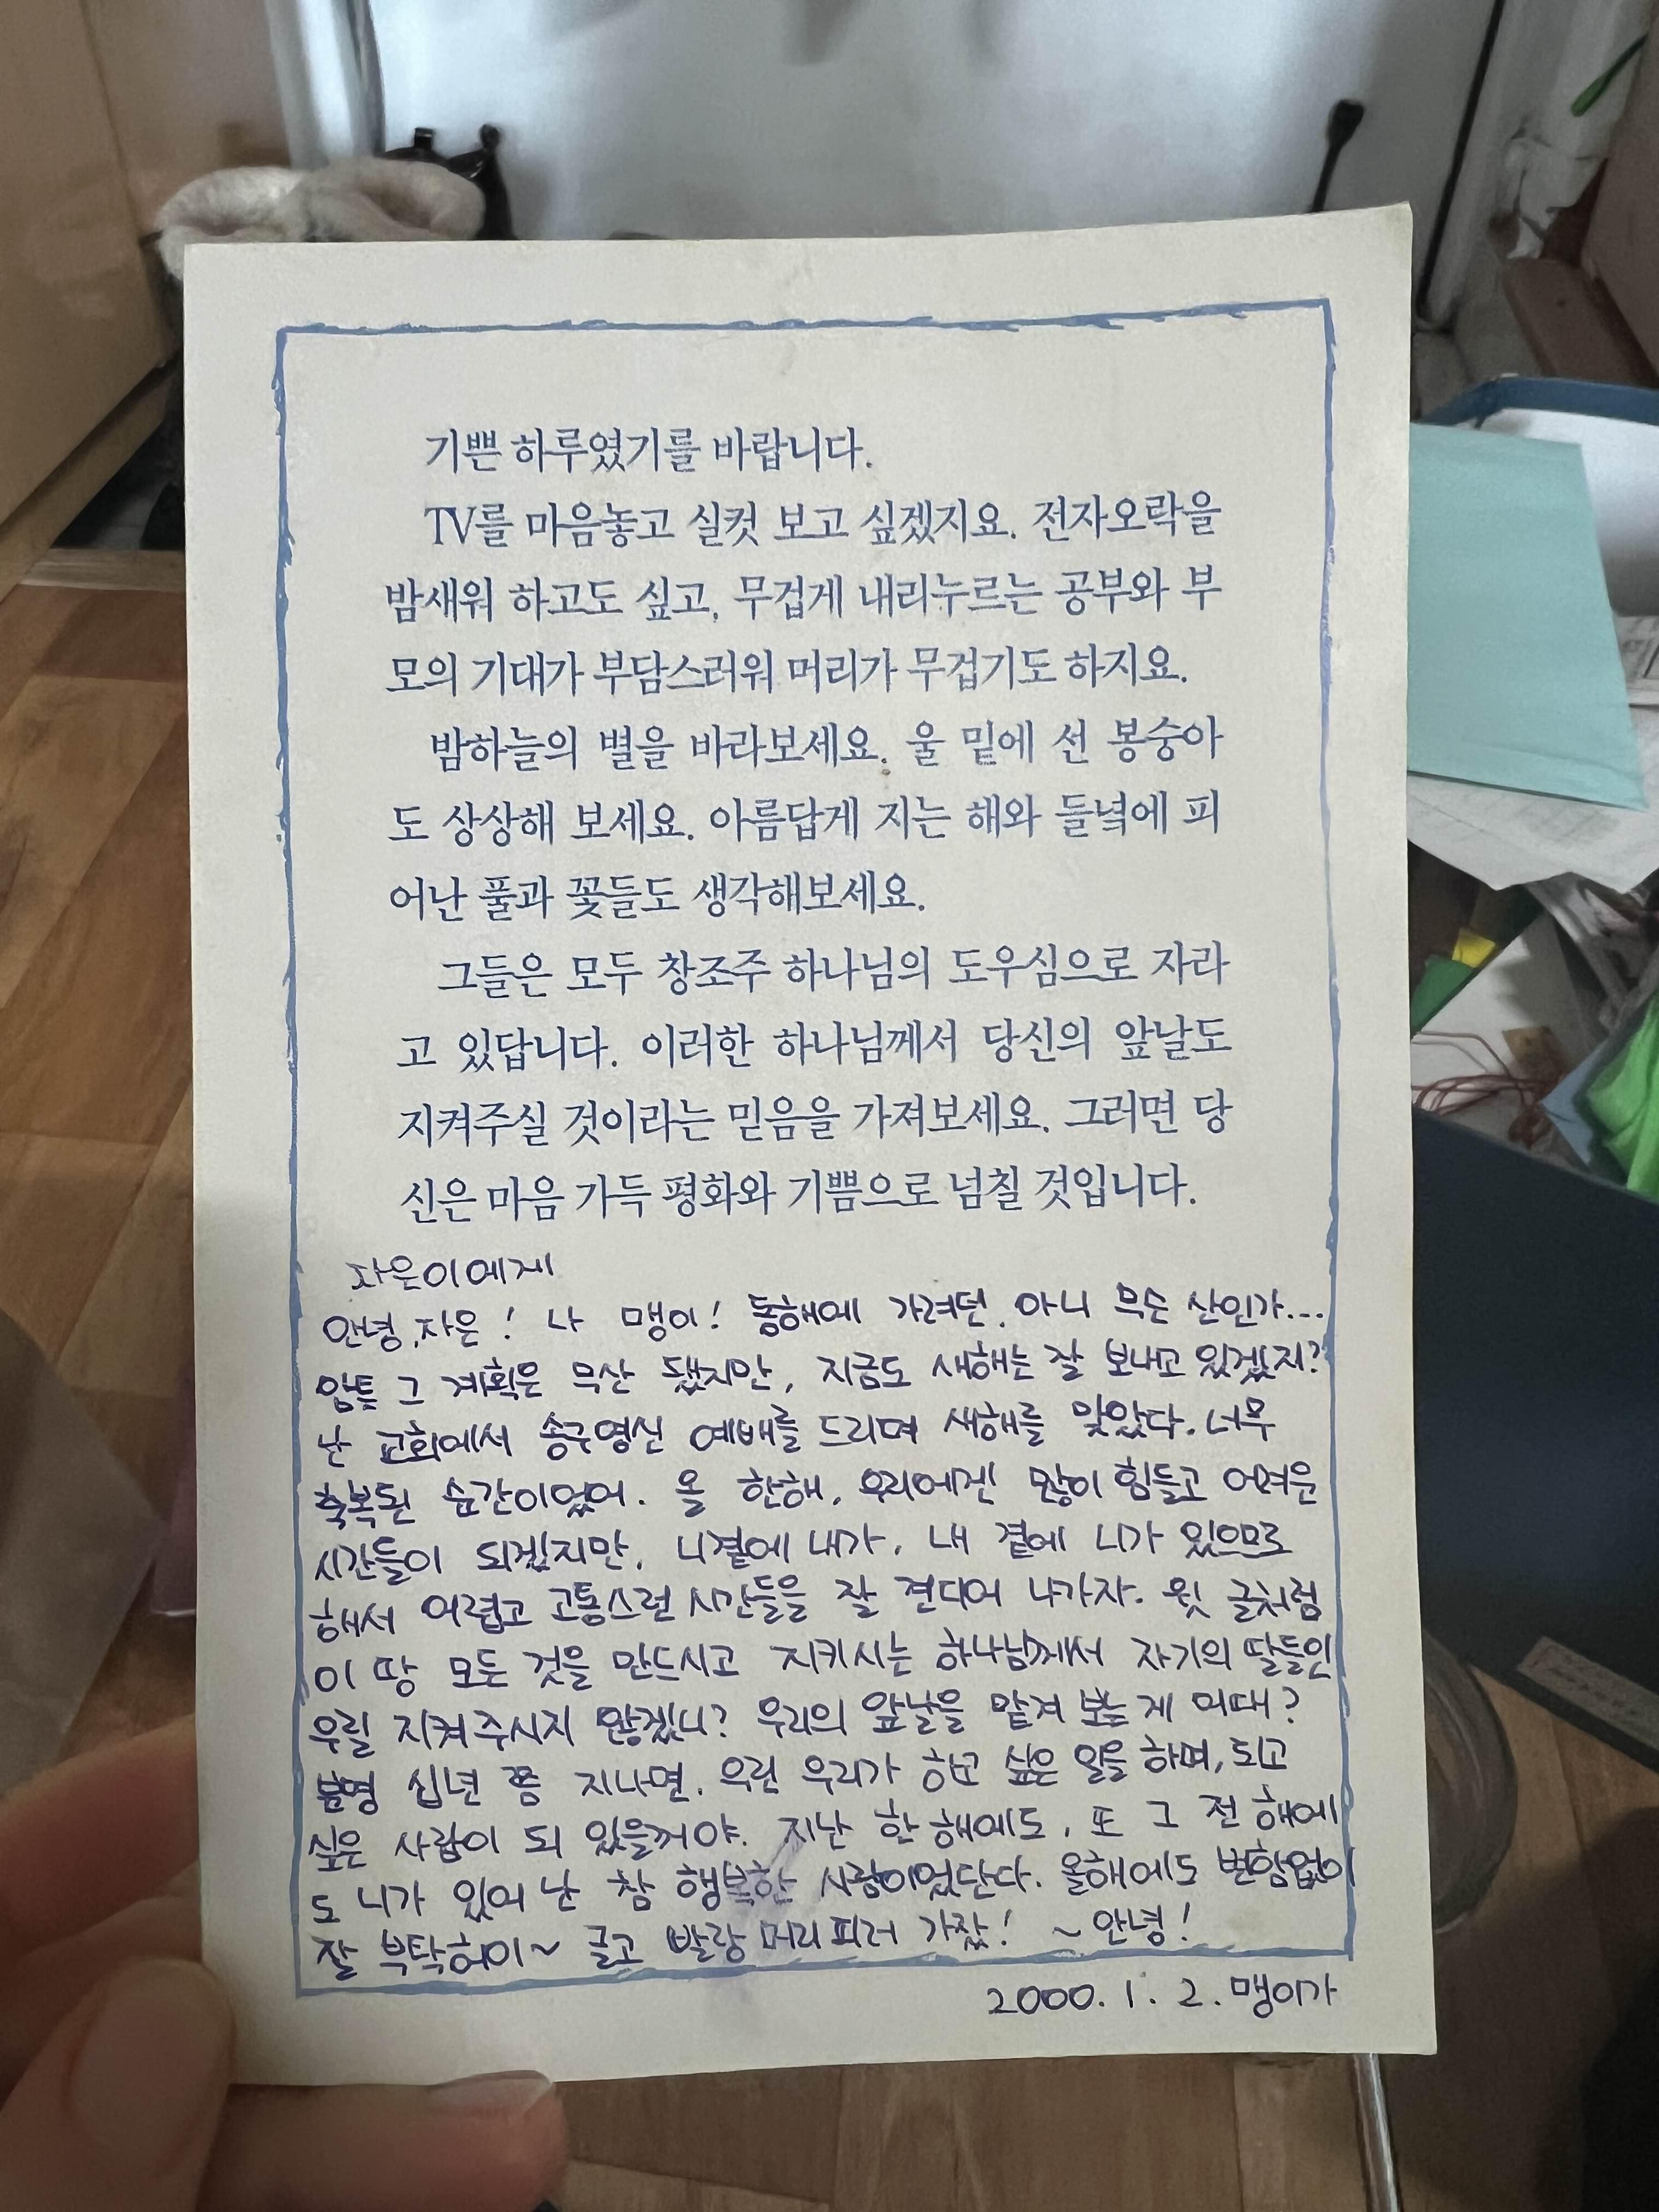 기쁜 하루였기를 바랍니다.
TV를 마음놓고 실컷 보고 싶겠지요. 전자오락을
밤새워 하고도 싶고, 무겁게 내리누르는 공부와 부
모의 기대가 부담스러워 머리가 무겁기도 하지요.
밤하늘의 별을 바라보세요. 울 밑에 선 봉숭아
도 상상해 보세요. 아름답게 지는 해와 들녘에 피
어난 풀과 꽃들도 생각해보세요.
그들은 모두 창조주 하나님의 도우심으로 자라
고 있답니다. 이러한 하나님께서 당신의 앞날도
지켜주실 것이라는 믿음을 가져보세요. 그러면 당
신은 마음 가득 평화와 기쁨으로 넘칠 것입니다.
자은이에게
안녕, 자은! 나 맹이! 동해에 가려던, 아니 무슨 산인가...
암튼 그 계획은 무산 됐지만, 지금도 새해는 잘 보내고 있겠지?
난 교회에서 송구영신 예배를 드리며 새해를 맞았다. 너무
축복된 순간이었어. 올 한해, 우리에겐 많이 힘들고 어려운
시간들이 되겠지만, 니곁에 내가, 내 곁에 니가 있으므로
해서 어렵고 고통스런 시간들을 잘 견디어 나가자. 윗 글처럼
이 땅 모든 것을 만드시고 지키시는 하나님께서 자기의 딸들인
우릴 지켜주시지 않겠니? 우리의 앞날을 맡겨 보는 게 어때?
분명 십년 쯤 지나면, 우린 우리가 하고 싶은 일을 하며, 되고
싶은 사람이 되 있을꺼야. 지난 한 해에도, 또 그 전 해에
도 니가 있어 난 참 행복한 사람이었단다. 올해에도 변함없이
잘 부탁허이~ 글고 빨랑 머리 피러 가잤! ~안녕!
2000. 1. 2. 맹이가